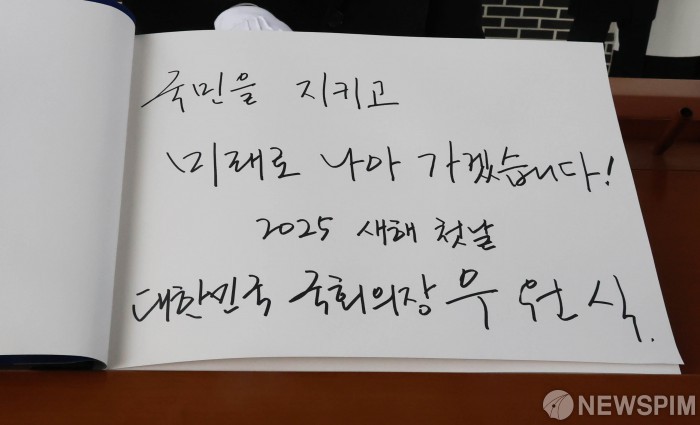 국민을 지키고
미래로 나아 가겠습니다!
2025 새해 첫날
대한민국 국회의장 우 원 식.
NEWSPIM